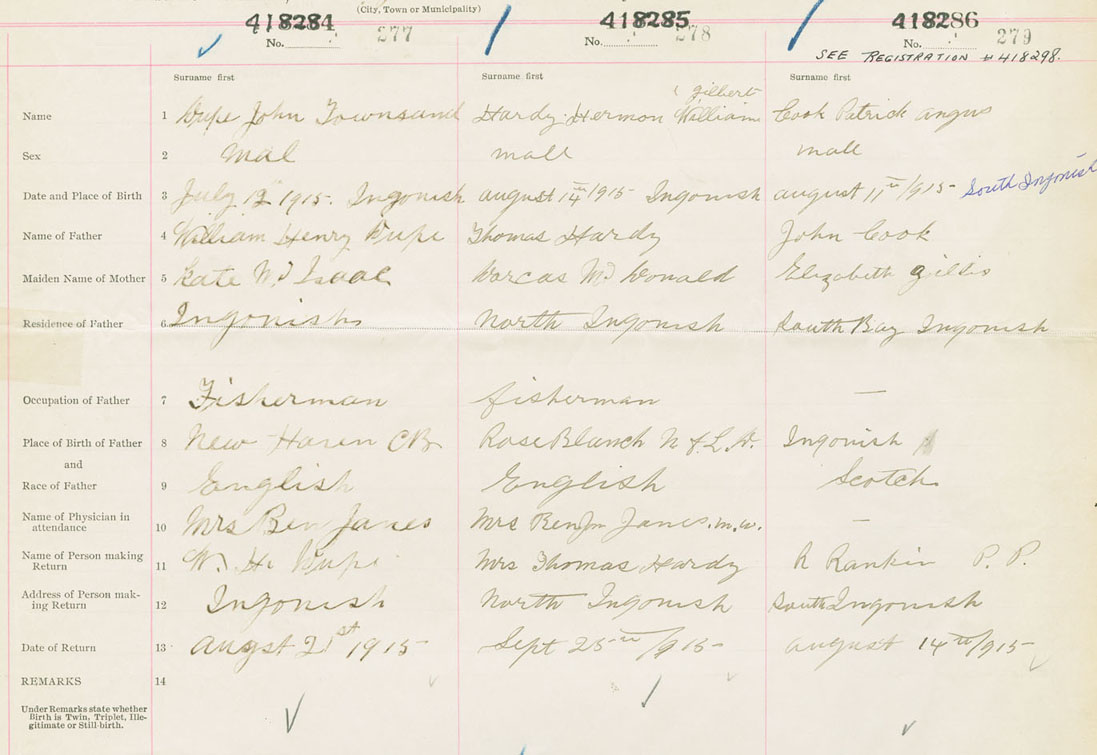 (City, Town or Municipality)
418284 418285 418286
No. 277 No. 278 No. 279
SEE REGISTRATION #418298.
Surname first Surname first Surname first
Gilbert
Name 1 Dupe John Townsand Hardy Hermon William Cook Patrick angus
Sex 2 Mal male male
Date and Place of Birth 3 July 12 1915. Ingonish august 14th/1915 Ingonish august 11th/1915- South Ingonish
Name of Father 4 William Henry Dupe Thomas Hardy John Cook
Maiden Name of Mother 5 Kate Mc Isaac Darcas Mc Donald Elizabeth gillis
Residence of Father 6 Ingonish North Ingonish South Bay Ingonish
Occupation of Father 7 Fisherman fisherman —
Place of Birth of Father 8 New Haven CB Rose Blanch N f. L. D. Ingonish
and
Race of Father 9 English English Scotch
Name of Physician in
attendance 10 Mrs Ben Janes Mrs Benjn Janes. m.w. —
Name of Person making
Return 11 W. H. Dupe Mrs Thomas Hardy R Rankin P. P.
Address of Person mak-
ing Return 12 Ingonish North Ingonish South Ingonish
Date of Return 13 Augst 21st 1915 Sept 25th/915- august 14th/915-
REMARKS 14
Under Remarks state whether
Birth is Twin, Triplet, Ille-
gitimate or Still-birth.